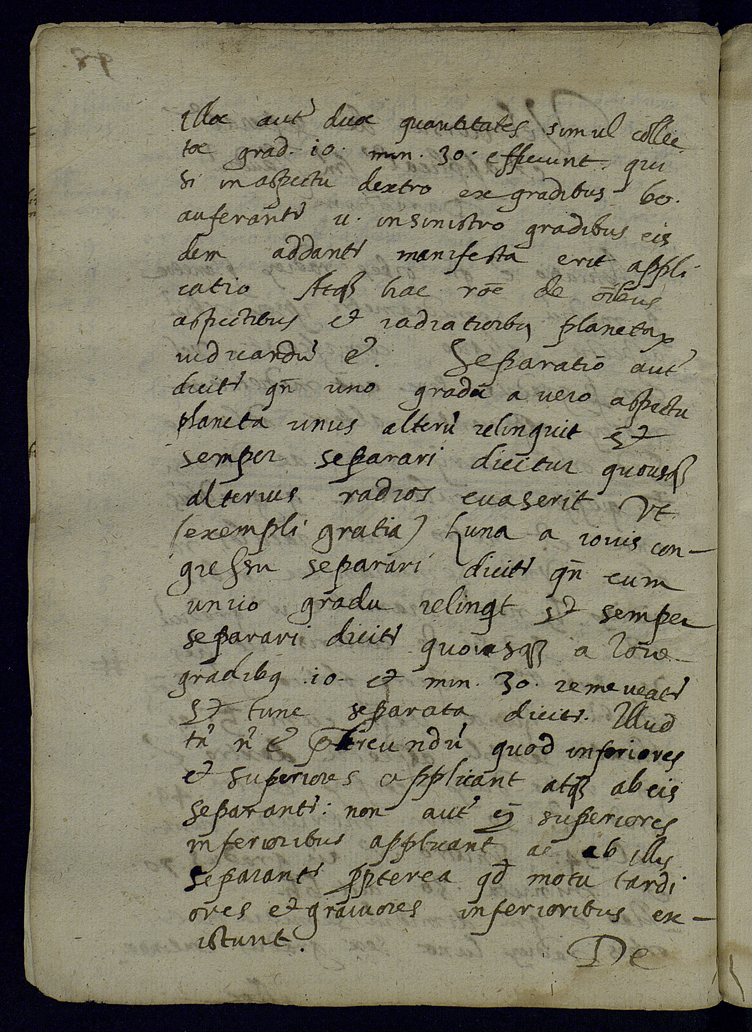 illae aut̄ duae quantitates simul collec
tae grad. 10. min. 30. efficiunt. qui
si in aspectu dextro ex gradibus 60.
auferant̄ u. in sinistro gradibus eis
dem addant̄ manifesta erit appli
catio Atq̄ hac rōe de oībus
aspectibus et radiatioībus planetaꝝ
iudicandū ē. Separatio aut̄
dicit̄ qn̄ uno gradu a uero aspectu
planeta unus alterū relinquit Et
semper separari dicitur quousq̄
alterius radios euaserit Vt
(exempli gratia) Luna a iouis con-
gressu separari dicit̄ qn̄ eum
unico gradu relinqt Et semper
separari dicit̄ quousq̄ a Ioue
gradibꝯ .10. et min. 30. remoueat̄
Et tunc separata dicit̄. Illud
tn̄ n̄ ē quod inferiores
et superiores applicant atq̄ ab eis
separant̄: non aut̄ q̄ superiores
inferioribus applicant ac ab illis
separant̄ ꝓpterea qd̄ motu tardi
ores et grauiores inferioribus ex-
istunt.
De